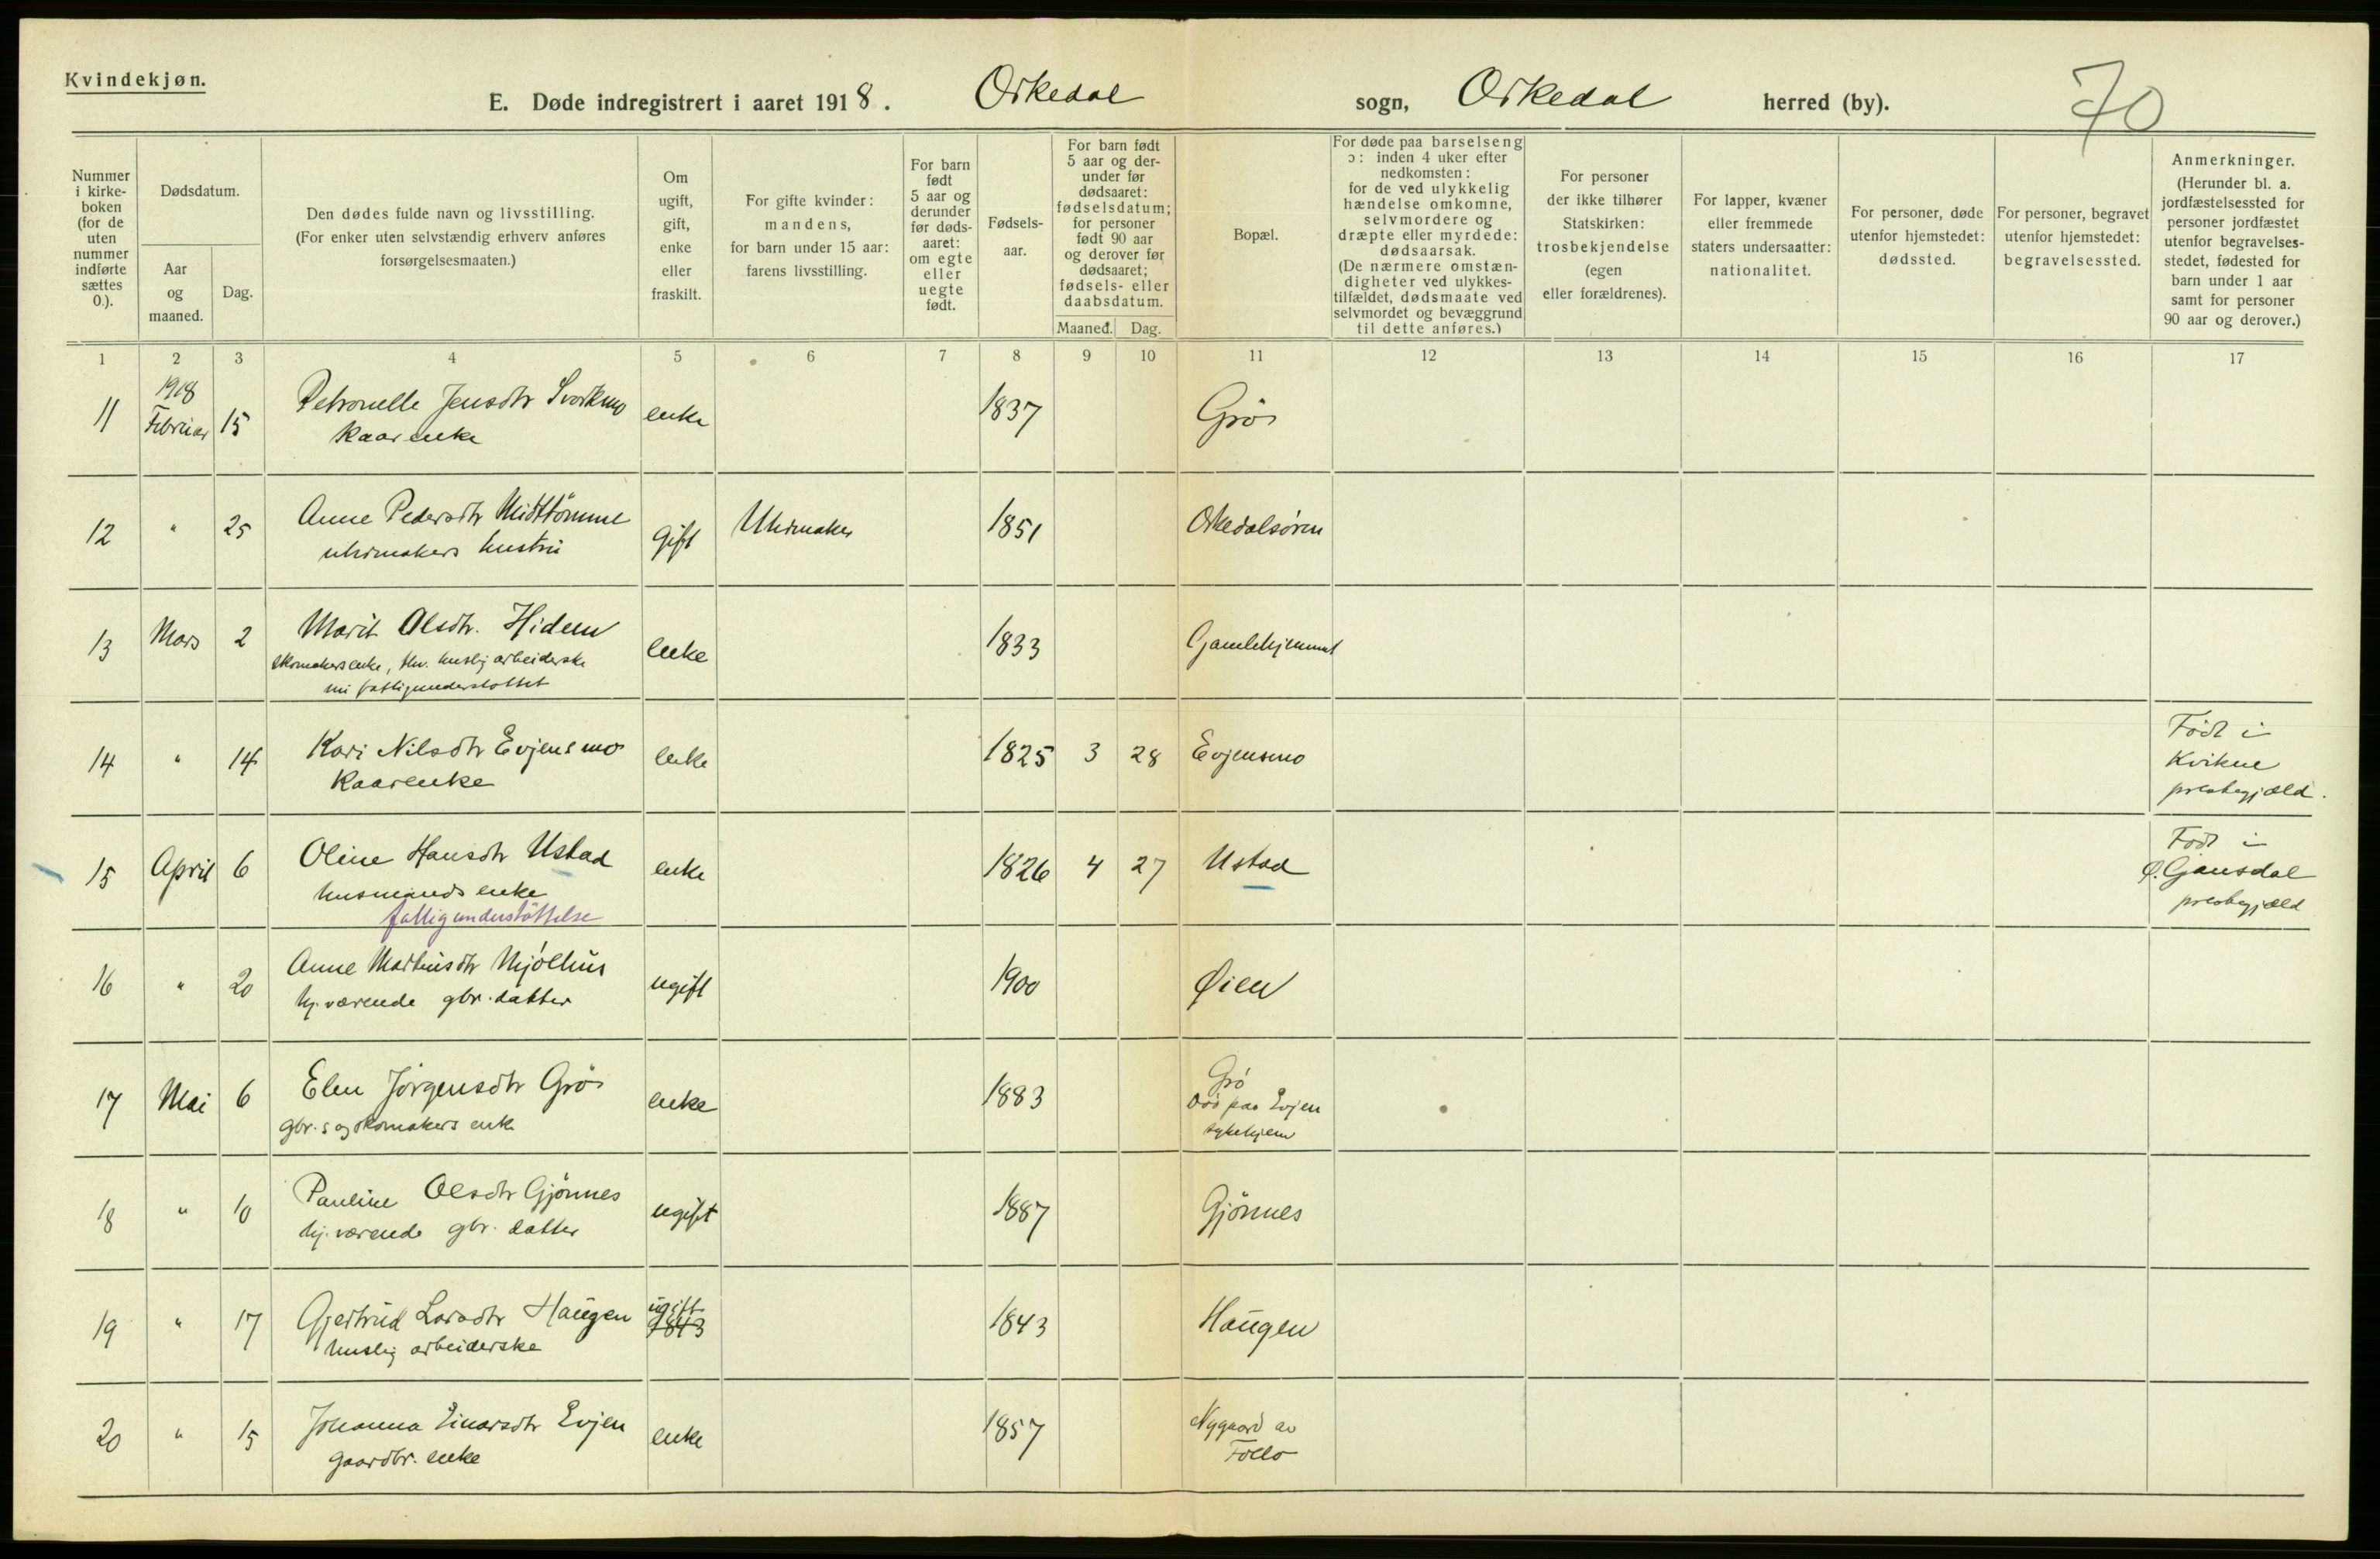 Kvindekjøn.
E. Døde indregistrert i aaret 1918. Orkedal sogn, Orkedal herred (by). 70
Nummer i kirke-boken (for de uten nummer indførte sættes 0.).
Dødsdatum.
Aar og maaned.
Dag.
Den dødes fulde navn og livsstilling.
(For enker uten selvstændig erhverv anføres
forsørgelsesmaaten.)
Om ugift, gift, enke eller fraskilt.
For gifte kvinder:
mandens,
for barn under 15 aar:
farens livsstilling.
For barn født 5 aar og derunder før døds-aaret: om egte eller uegte født.
Fødsels-aar.
For barn født 5 aar og der-under før dødsaaret: fødselsdatum; for personer født 90 aar og derover før dødsaaret; fødsels- eller daabsdatum.
Maaned. Dag.
Bopæl.
For døde paa barselseng
ɔ: inden 4 uker efter
nedkomsten:
for de ved ulykkelig
hændelse omkomne,
selvmordere og
dræpte eller myrdede:
dødsaarsak.
(De nærmere omstæn-
digheter ved ulykkes-
tilfældet, dødsmaate ved
selvmordet og bevæggrund
til dette anføres.)
For personer
der ikke tilhører
Statskirken:
trosbekjendelse
(egen
eller forældrenes).
For lapper, kvæner
eller fremmede
staters undersaatter:
nationalitet.
For personer, døde
utenfor hjemstedet:
dødssted.
For personer, begravet
utenfor hjemstedet:
begravelsessted.
Anmerkninger.
(Herunder bl. a.
jordfæstelsessted for
personer jordfæstet
utenfor begravelses-
stedet, fødested for
barn under 1 aar
samt for personer
90 aar og derover.)
1 2 3 4 5 6 7 8 9 10 11 12 13 14 15 16 17
1918
11 Februar 15 Petronelle Jensdtr Svorkmo enke 1837 Grö
Kaarenke
12 " 25 Anne Pedersdtr Midttömme gift Uhrmaker 1851 Orkedalsøren
uhrmakers hustru
13 Mars 2 Marit Olsdtr. Hidem enke 1833 Gamlehjemmet
skomakersenke, huslig arbeiderske
fattigunderstøttet
14 " 14 Kari Nilsdtr Evjensmo enke 1825 3 28 Evjensmo Født i
Kaarenke Kvikne
prestegjæld.
15 April 6 Oline Hansdtr Ustad enke 1826 4 27 Ustad Født i
husmands enke Ø. Gausdal
fattigunderstöttelse prestegjæld
16 " 20 Anne Martinsdtr Mjölhus ugift 1900 Øien
hj. værende gbr. datter
17 Mai 6 Elen Jörgensdtr Grö enke 1883 Grö
gbr.s og skomakers enke Död paa Evjen
sykehjem
18 " 10 Pauline Olsdtr Gjönnes ugift 1887 Gjönnes
hj. værende gbr. datter
19 " 17 Gjertrud Larsdtr Haugen ugift 1843 1843 Haugen
huslig arbeiderske
20 " 15 Johanna Einarsdtr Evjen enke 1857 Nygaard av
gaardbr. enke Follo